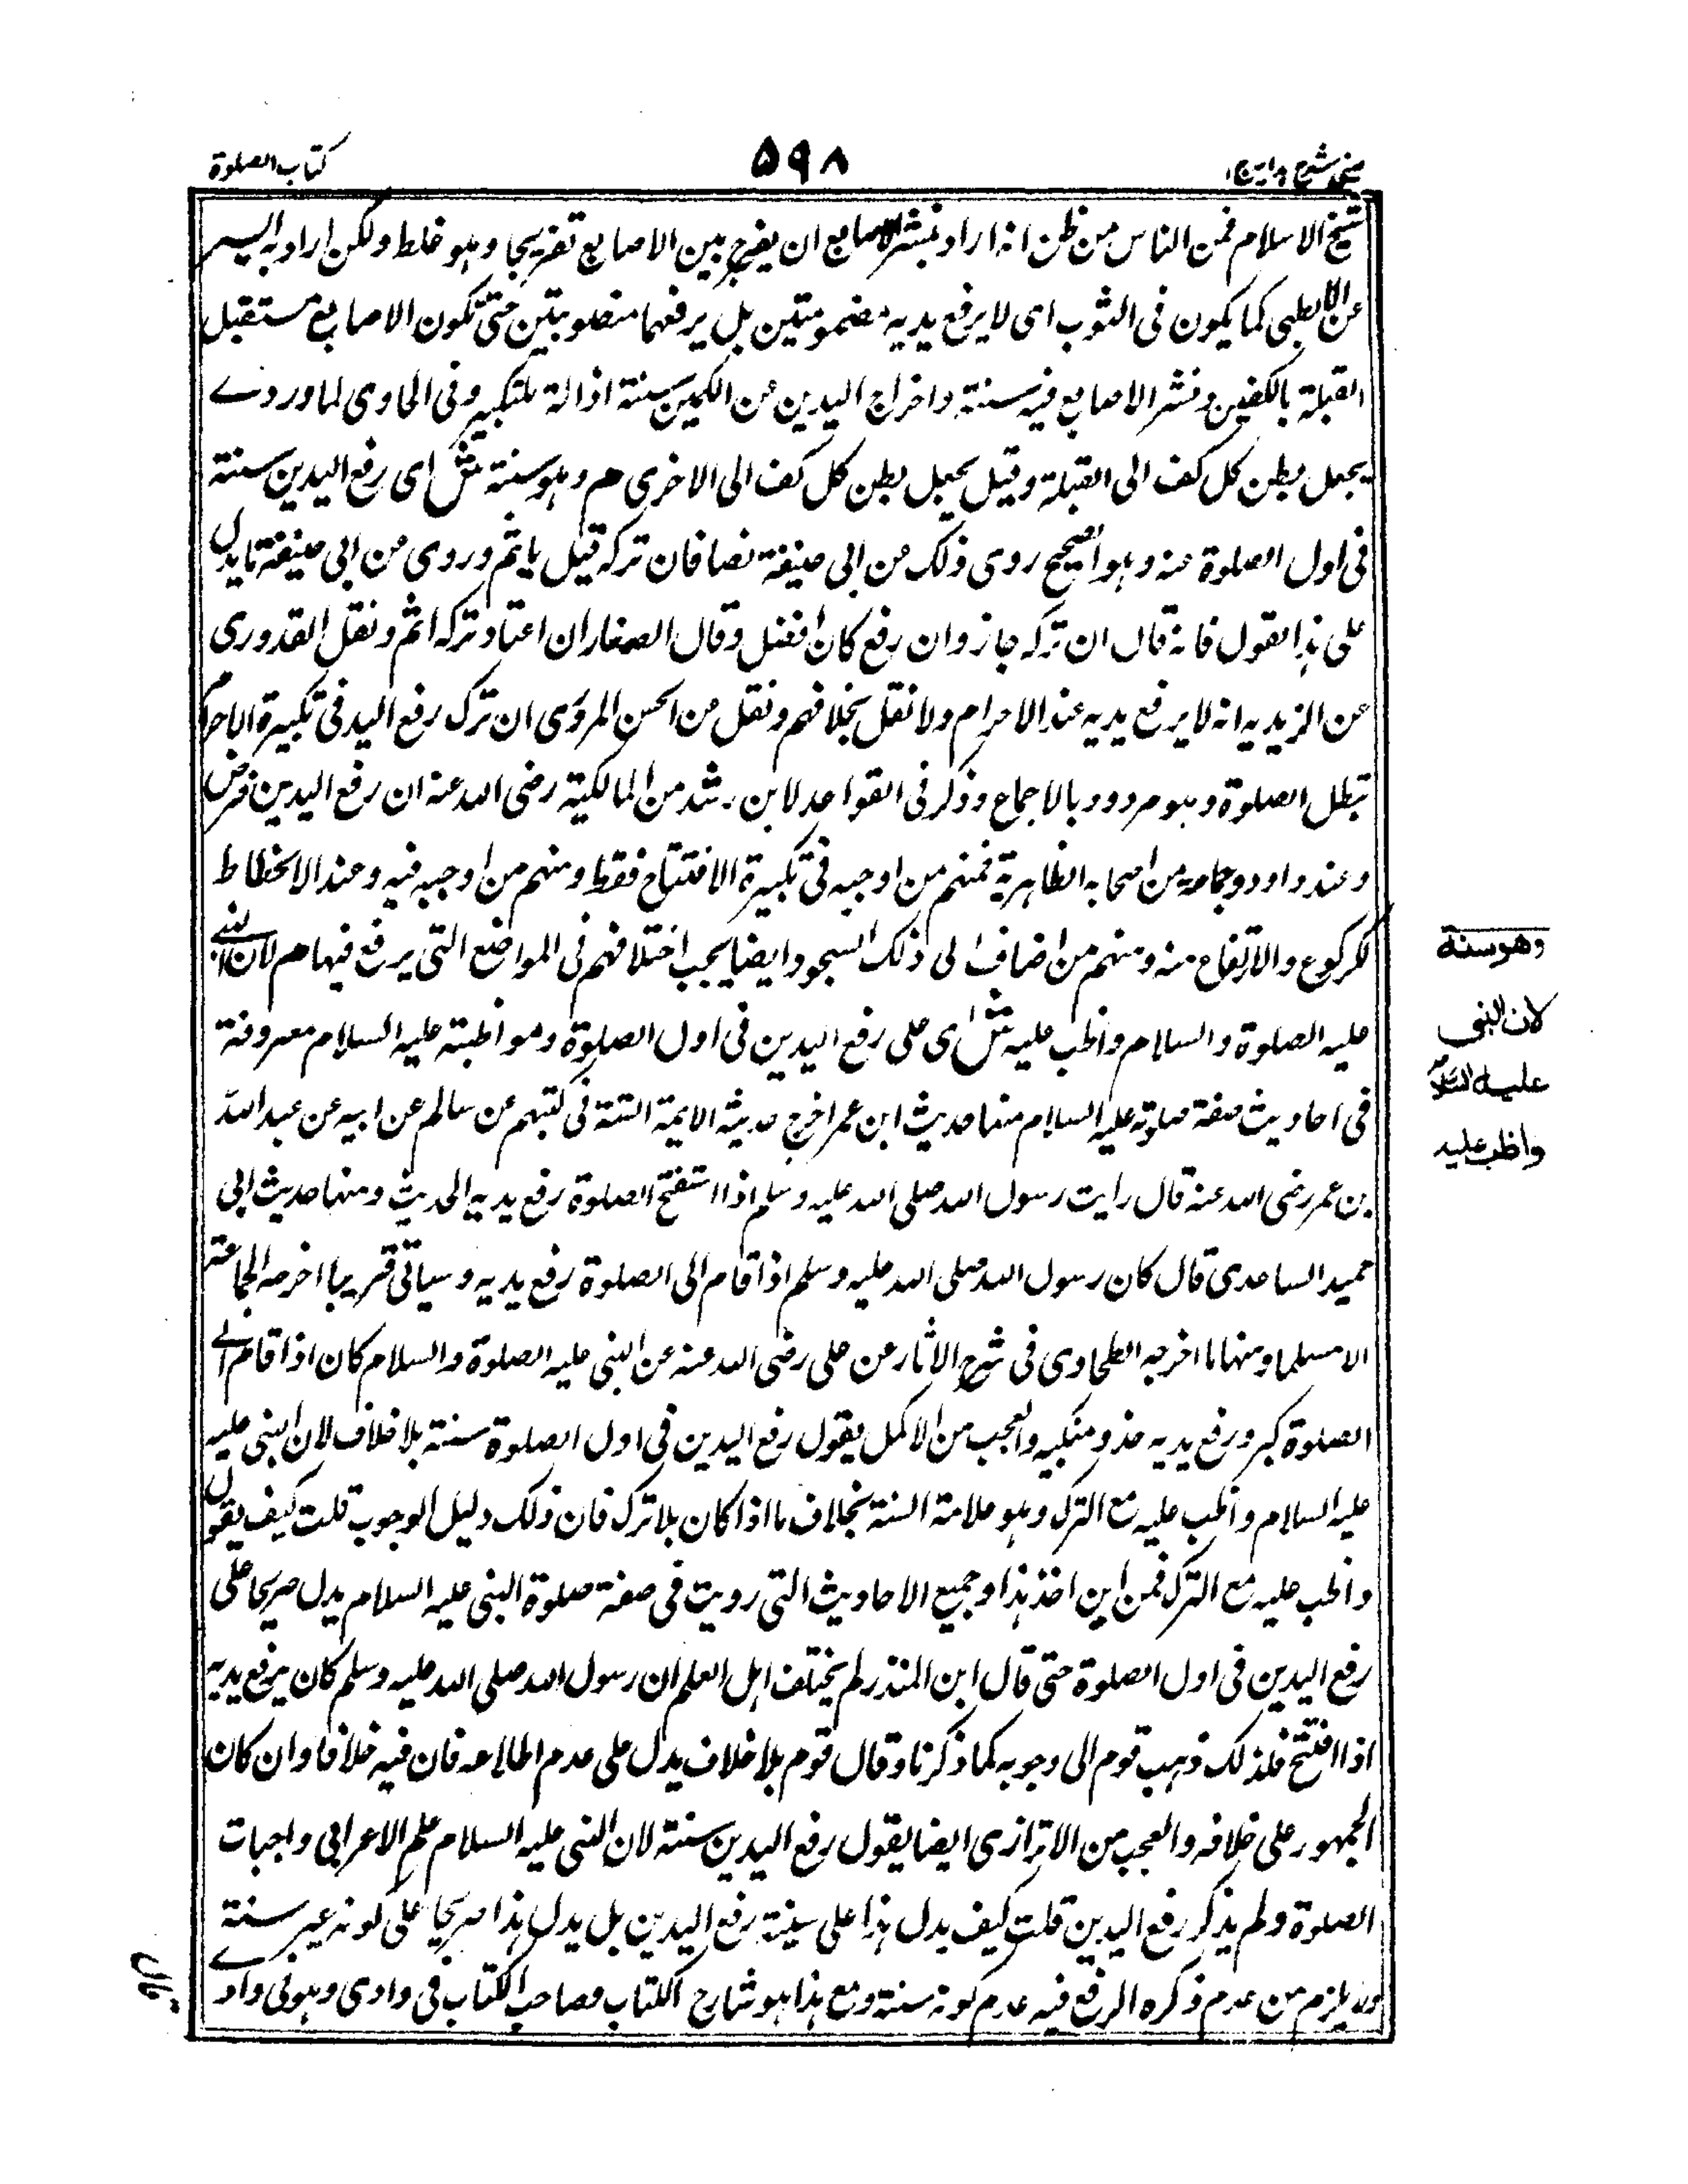 كتاب الصلوة
٥٩٨
شيخ الاسلام فمن الناس من ظن انه اراد بنشر الاصابع ان يفرج بين الاصابع تفريجا وهو غلط ولكن اراد به النشر
عن الطي كما يكون فى الثوب اى لا يرفع يديه مضمومتين بل يرفعهما منصوبتين حتى تكون الاصابع مستقبل
القبلة بالكفين ونشر الاصابع فيه سنة واخراج اليدين من الكمين سنة اذ الة للتكبير وفى الحاوى لماوردے
يجعل بطن كل كف الى القبلة وقيل يجعل بطن كل كف الى الاخرى م وهو سنة ش اى رفع اليدين سنة
فى اول الصلوة عنه وهو الصحيح روى ذلك من ابى حنيفة نصا فان تركه قيل ياثم وروى من ابى حنيفة ما يدل
على هذا القول فانه قال ان تركه جاز وان رفع كان افضل وقال الصفار ان اعتاد تركه اثم ونقل القدورى
عن الزيديه انه لا يرفع يديه عند الاحرام ولا نقل بخلافهم ونقل من الحسن المروى ان ترك رفع اليد فى تكبيرة الاحرام
تبطل الصلوة وهو مردود بالاجماع وذكر فى القواعد لابن رشد من المالكية رضى الله عنه ان رفع اليدين فرض
وعند داود وجماعه من اصحابه الظاهرية فمنهم من اوجبه فى تكبيرة الافتتاح فقط ومنهم من اوجبه فيه وعند الانحطاط
للركوع والارتفاع منه ومنهم من اضاف الى ذلك السجود وايضا يجب اختلافهم فى المواضع التى يرفع فيها م لان النبے
عليه الصلوة والسلام واظب عليه ش اى على رفع اليدين فى اول الصلوة ومواظبته عليه السلام معروفة
فى احاديث صفة صلوته عليه السلام منها حديث ابن عمر اخرج حديثه الايمة الستة فى كتبهم عن سالم عن ابيه عن عبد الله
بن عمر رضى الله عنه قال رايت رسول الله صلى الله عليه وسلم اذا استفتح الصلوة رفع يديه الحديث ومنها حديث ابى
حميد الساعدى قال كان رسول الله صلى الله عليه وسلم اذا قام الى الصلوة رفع يديه وسياتى قريبا اخرجه الجماعة
الا مسلما ومنها ما اخرجه الطحاوى فى شرح الاثار عن على رضى الله عنه عن النبى عليه الصلوة والسلام كان اذا قام الے
الصلوة كبر ورفع يديه حذو منكبيه والعجب من الاكمل يقول رفع اليدين فى اول الصلوة سنة بلا خلاف لان النبى عليه
عليه السلام واظب عليه مع الترك وهو علامة السنة بخلاف ما اذا كان بلا ترك فان ذلك دليل الوجوب قلت كيف يقول
واظب عليه مع الترك فمن اين اخذ هذا وجميع الاحاديث التى رويت فى صفة صلوة النبى عليه السلام يدل صريحا على
رفع اليدين فى اول الصلوة حتى قال ابن المنذر لم يختلف اهل العلم ان رسول الله صلى الله عليه وسلم كان يرفع يديه
اذا افتتح فلذلك ذهب قوم الى وجوبه كما ذكرنا وقال قوم بلا خلاف يدل على عدم اطلاعه فان فيه خلافا وان كان
الجمهور على خلافه والعجب من الاترازى ايضا يقول رفع اليدين سنة لان النبى عليه السلام علم الاعرابى واجبات
الصلوة ولم يذكر رفع اليدين قلت كيف يدل هذا على سنية رفع اليدين بل يدل هذا صريحا على كونه غير سنة
يلزم من عدم ذكره الرفع فيه عدم كونه سنة ومع هذا هو شارح الكتاب وصاحب الكتاب فى وادى وهو فى واد
وهو سنة
لان النبى
عليه السلام
واظب عليه
قال